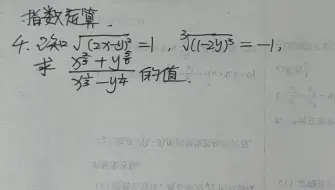 指数运算.
4. 已知√(2x-y)² = 1 , ³√(1-2y)³ = -1,
求 (x^{2/3} + y^{2/3}) / (x^{1/2} - y^{1/4}) 的值.